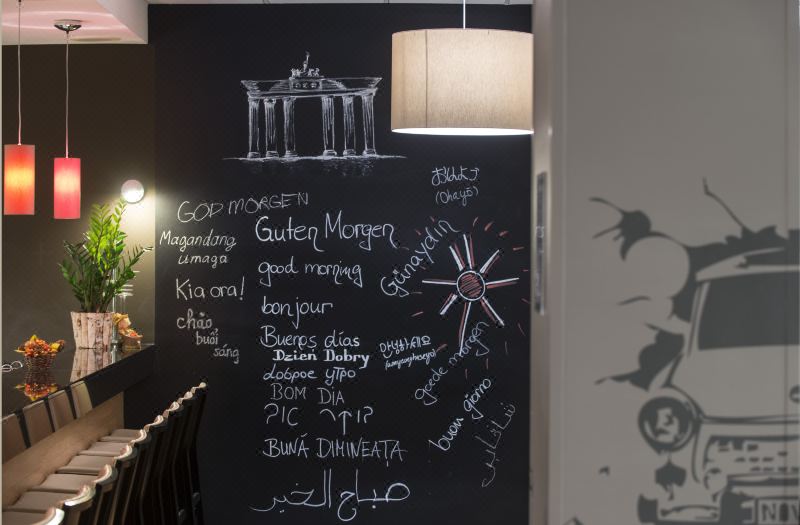 GOD MORGEN
Magandang
umaga
Kia ora!
chào
buổi
sáng
Guten Morgen
good morning
bonjour
Buenos días
Dzień Dobry
доброе утро
BOM DIA
BUNĂ DIMINEAȚA
صباح الخير
おはよう
(Ohayō)
Günaydin
안녕하세요
(annyeonghaseyo)
goede morgen
buon giorno